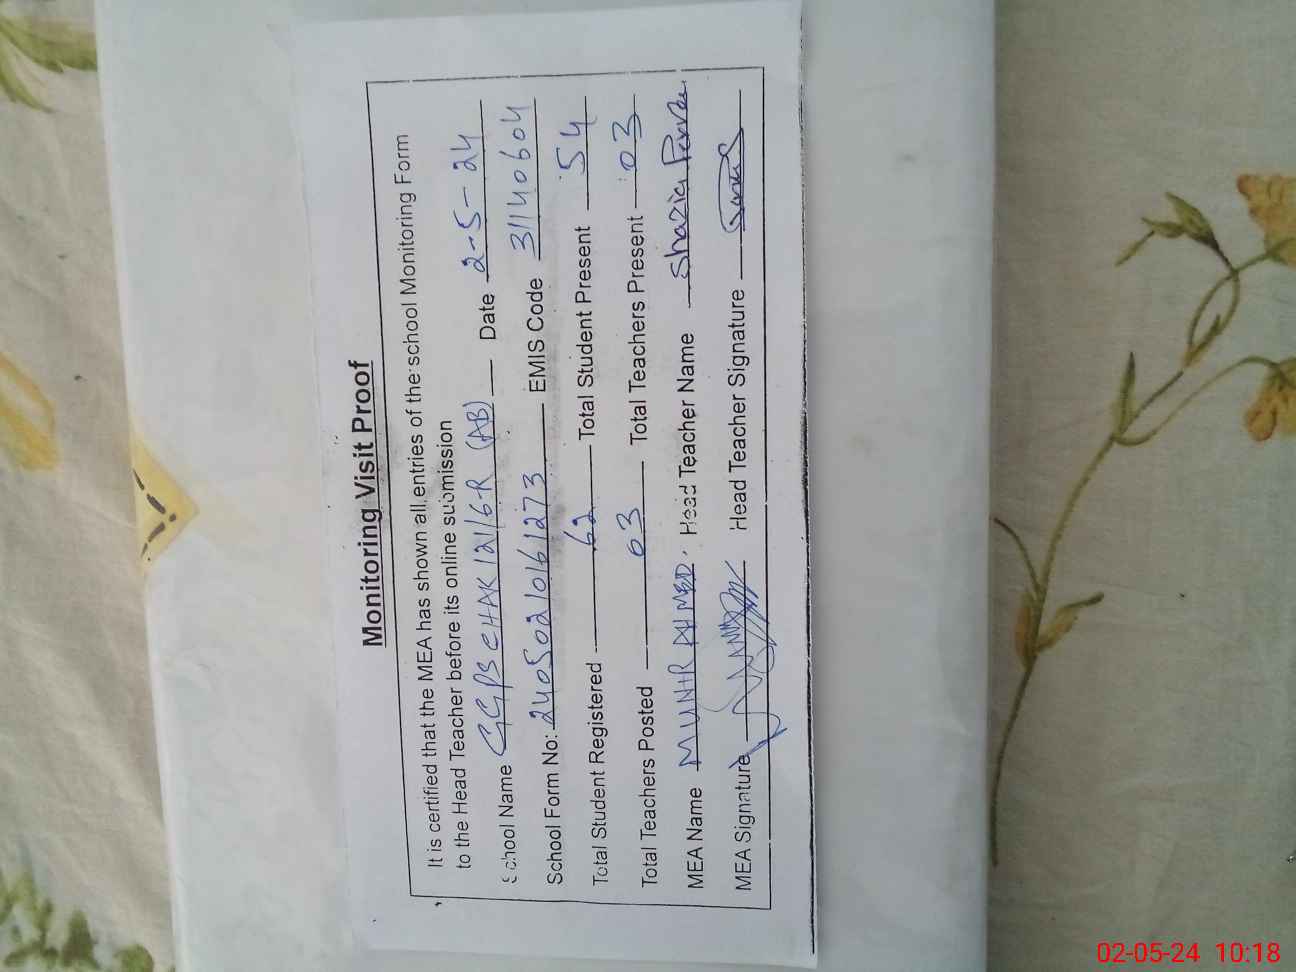 Monitoring Visit Proof
It is certified that the MEA has shown all entries of the school Monitoring Form
to the Head Teacher before its online submission
School Name GGPS CHAK 121/6-R (AB) Date 2-5-24
School Form No: 24050210161273 EMIS Code 31140604
Total Student Registered 62 Total Student Present 54
Total Teachers Posted 03 Total Teachers Present 03
MEA Name MUNIR AHMED. Head Teacher Name Shazia
MEA Signature Head Teacher Signature
02-05-24 10:18